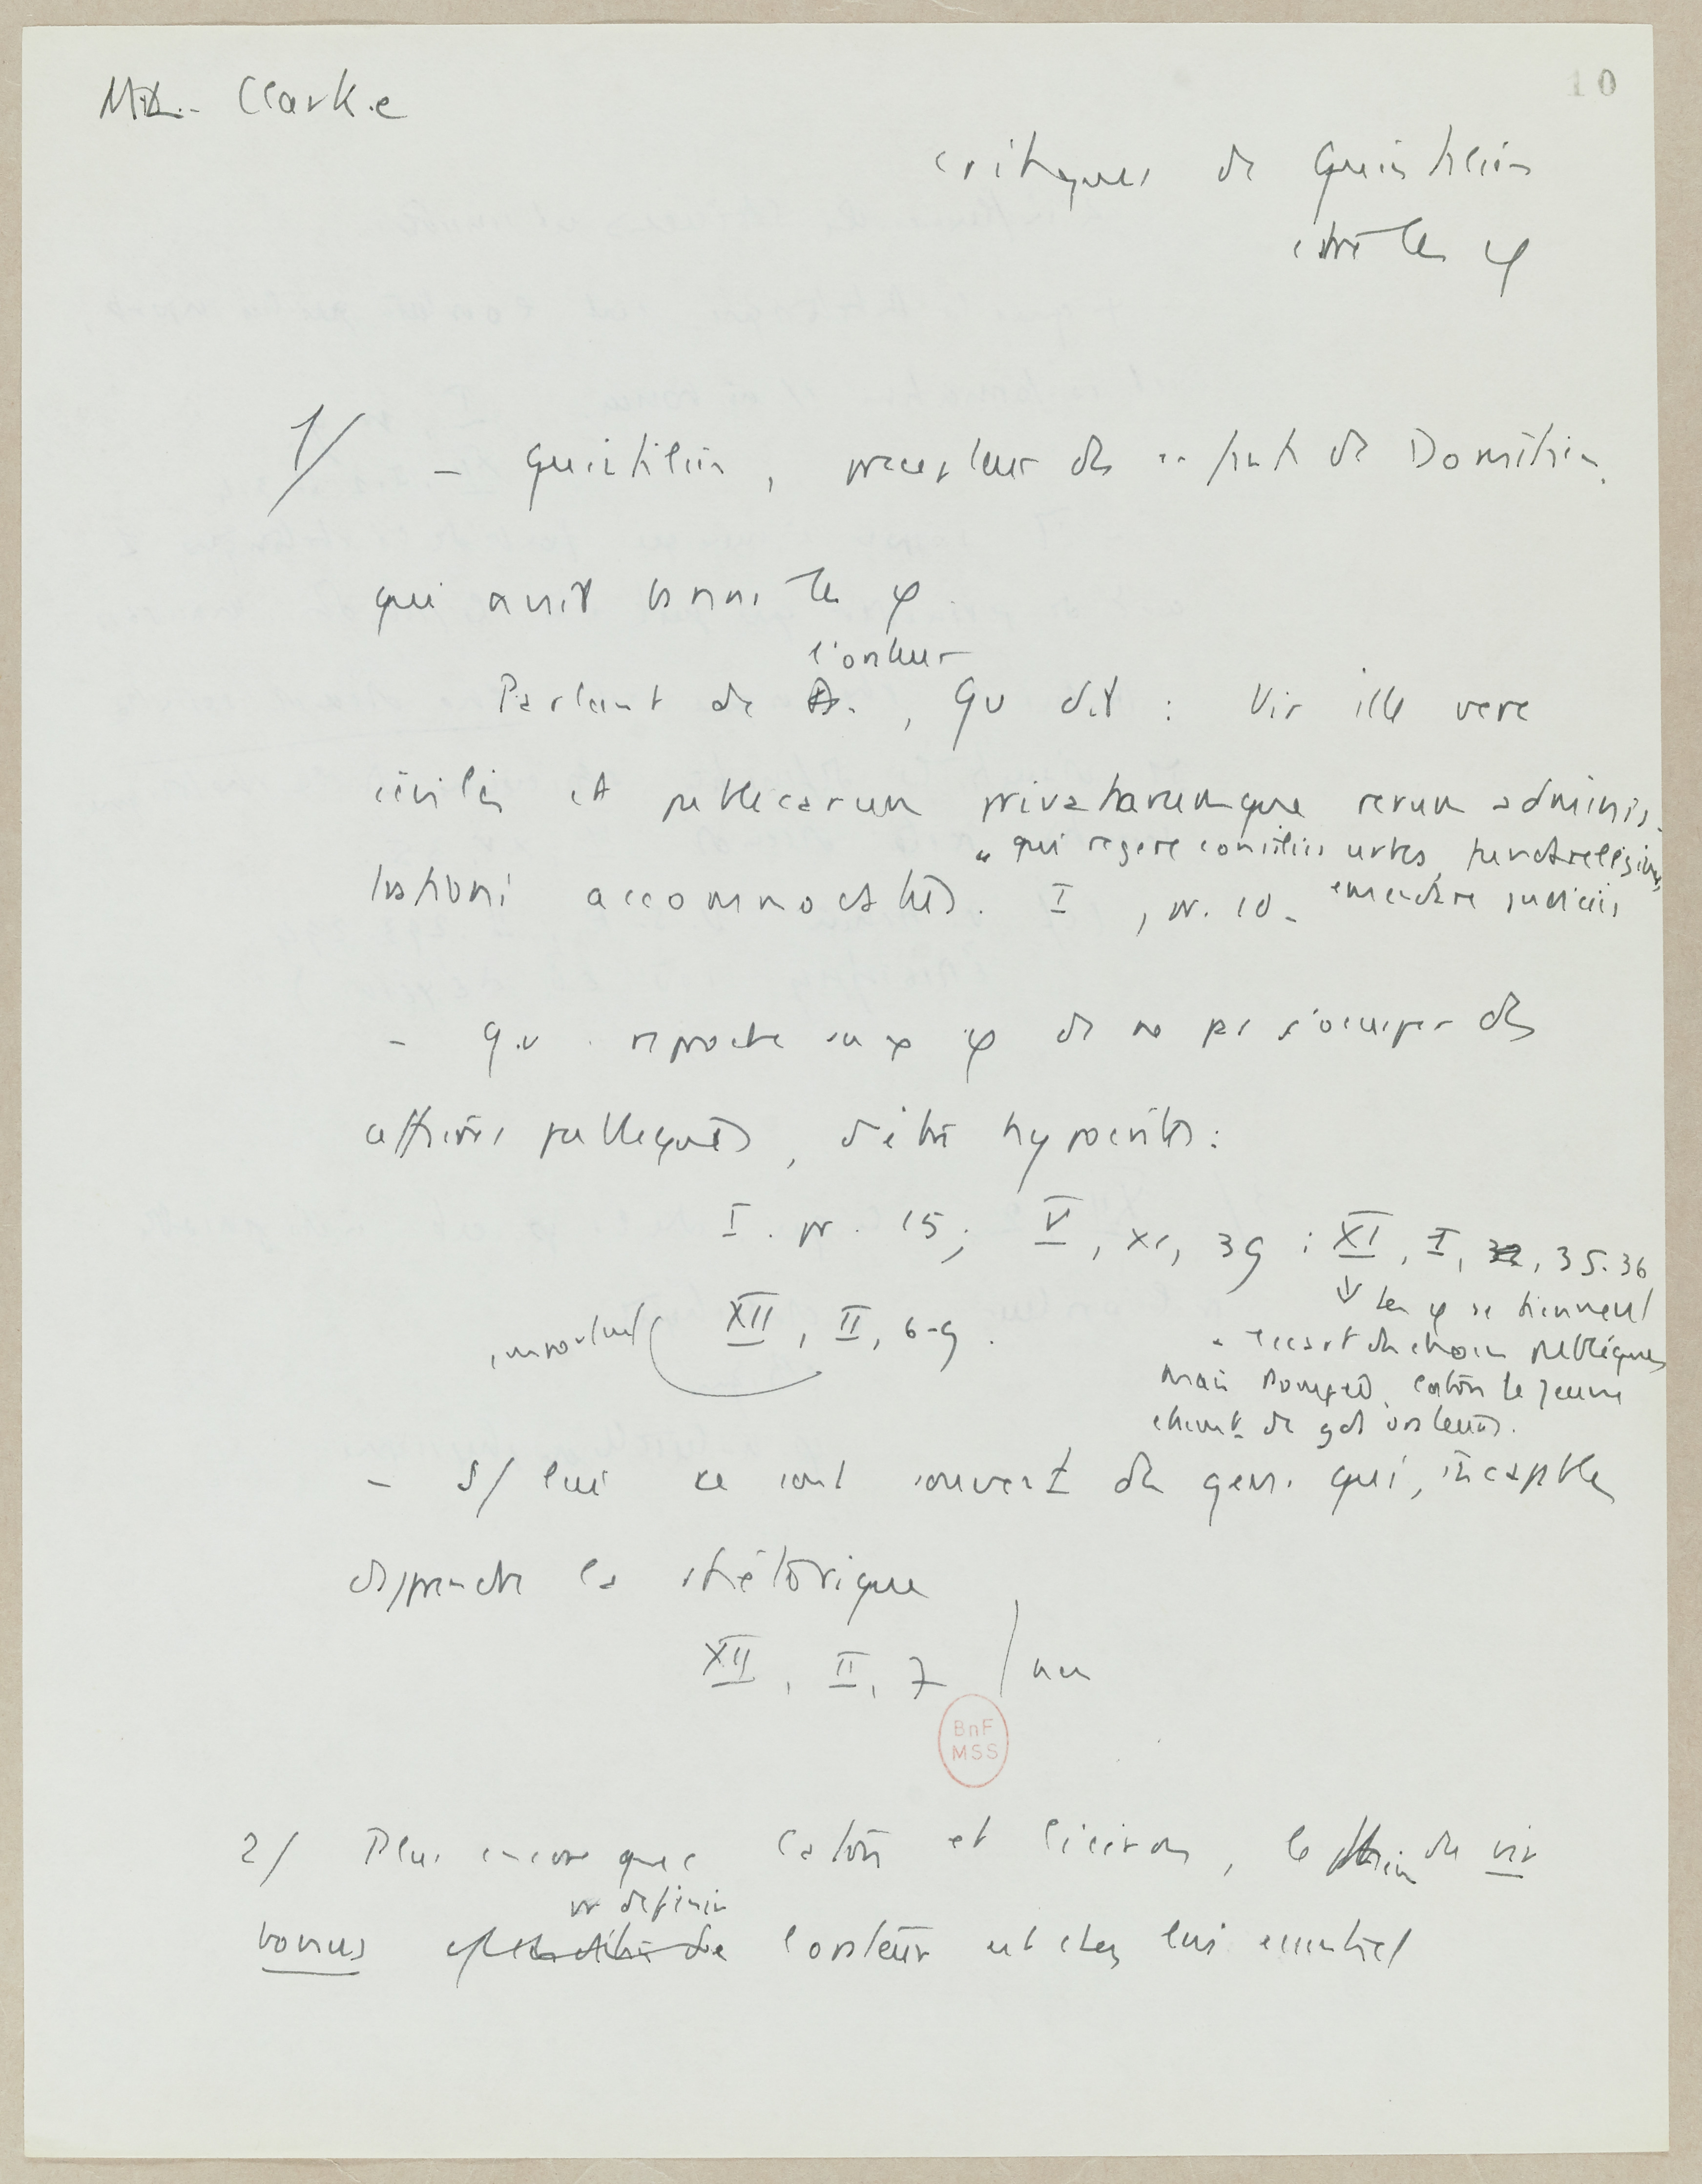 ML. Clarke
10
critiques de Quintilien
contre les φ
1/ - Quintilien, precepteur des enfants de Domitien.
qui avait banni les φ
l'orateur
Parlant de, Qu dit : Vir ille vere
civilis et publicarum privatarumque rerum adminis-
" qui regere consiliis urbes, fundare legibus,
trationi accommodatus. I, pr. 10 - emendare judiciis
- Qu. reproche aux φ de ne pas s'occuper des
affaires publiques, d'être hypocrites :
I. pr. 15 ; V, XI, 39 ; XI, I, 35.36
↓ les φ se tiennent
important XII, II, 6-9.
à l'écart des choses publiques
mais Pompée, Caton le jeune
étaient de gds orateurs.
- s/ lui ce sont souvent des gens qui, incapables
d'apprendre la rhétorique
XII, II, 7 / nu
BnF
MSS
2/ Plus encore que Caton et Ciceron, le thème du vir
pr definir
bonus l'orateur est chez lui essentiel